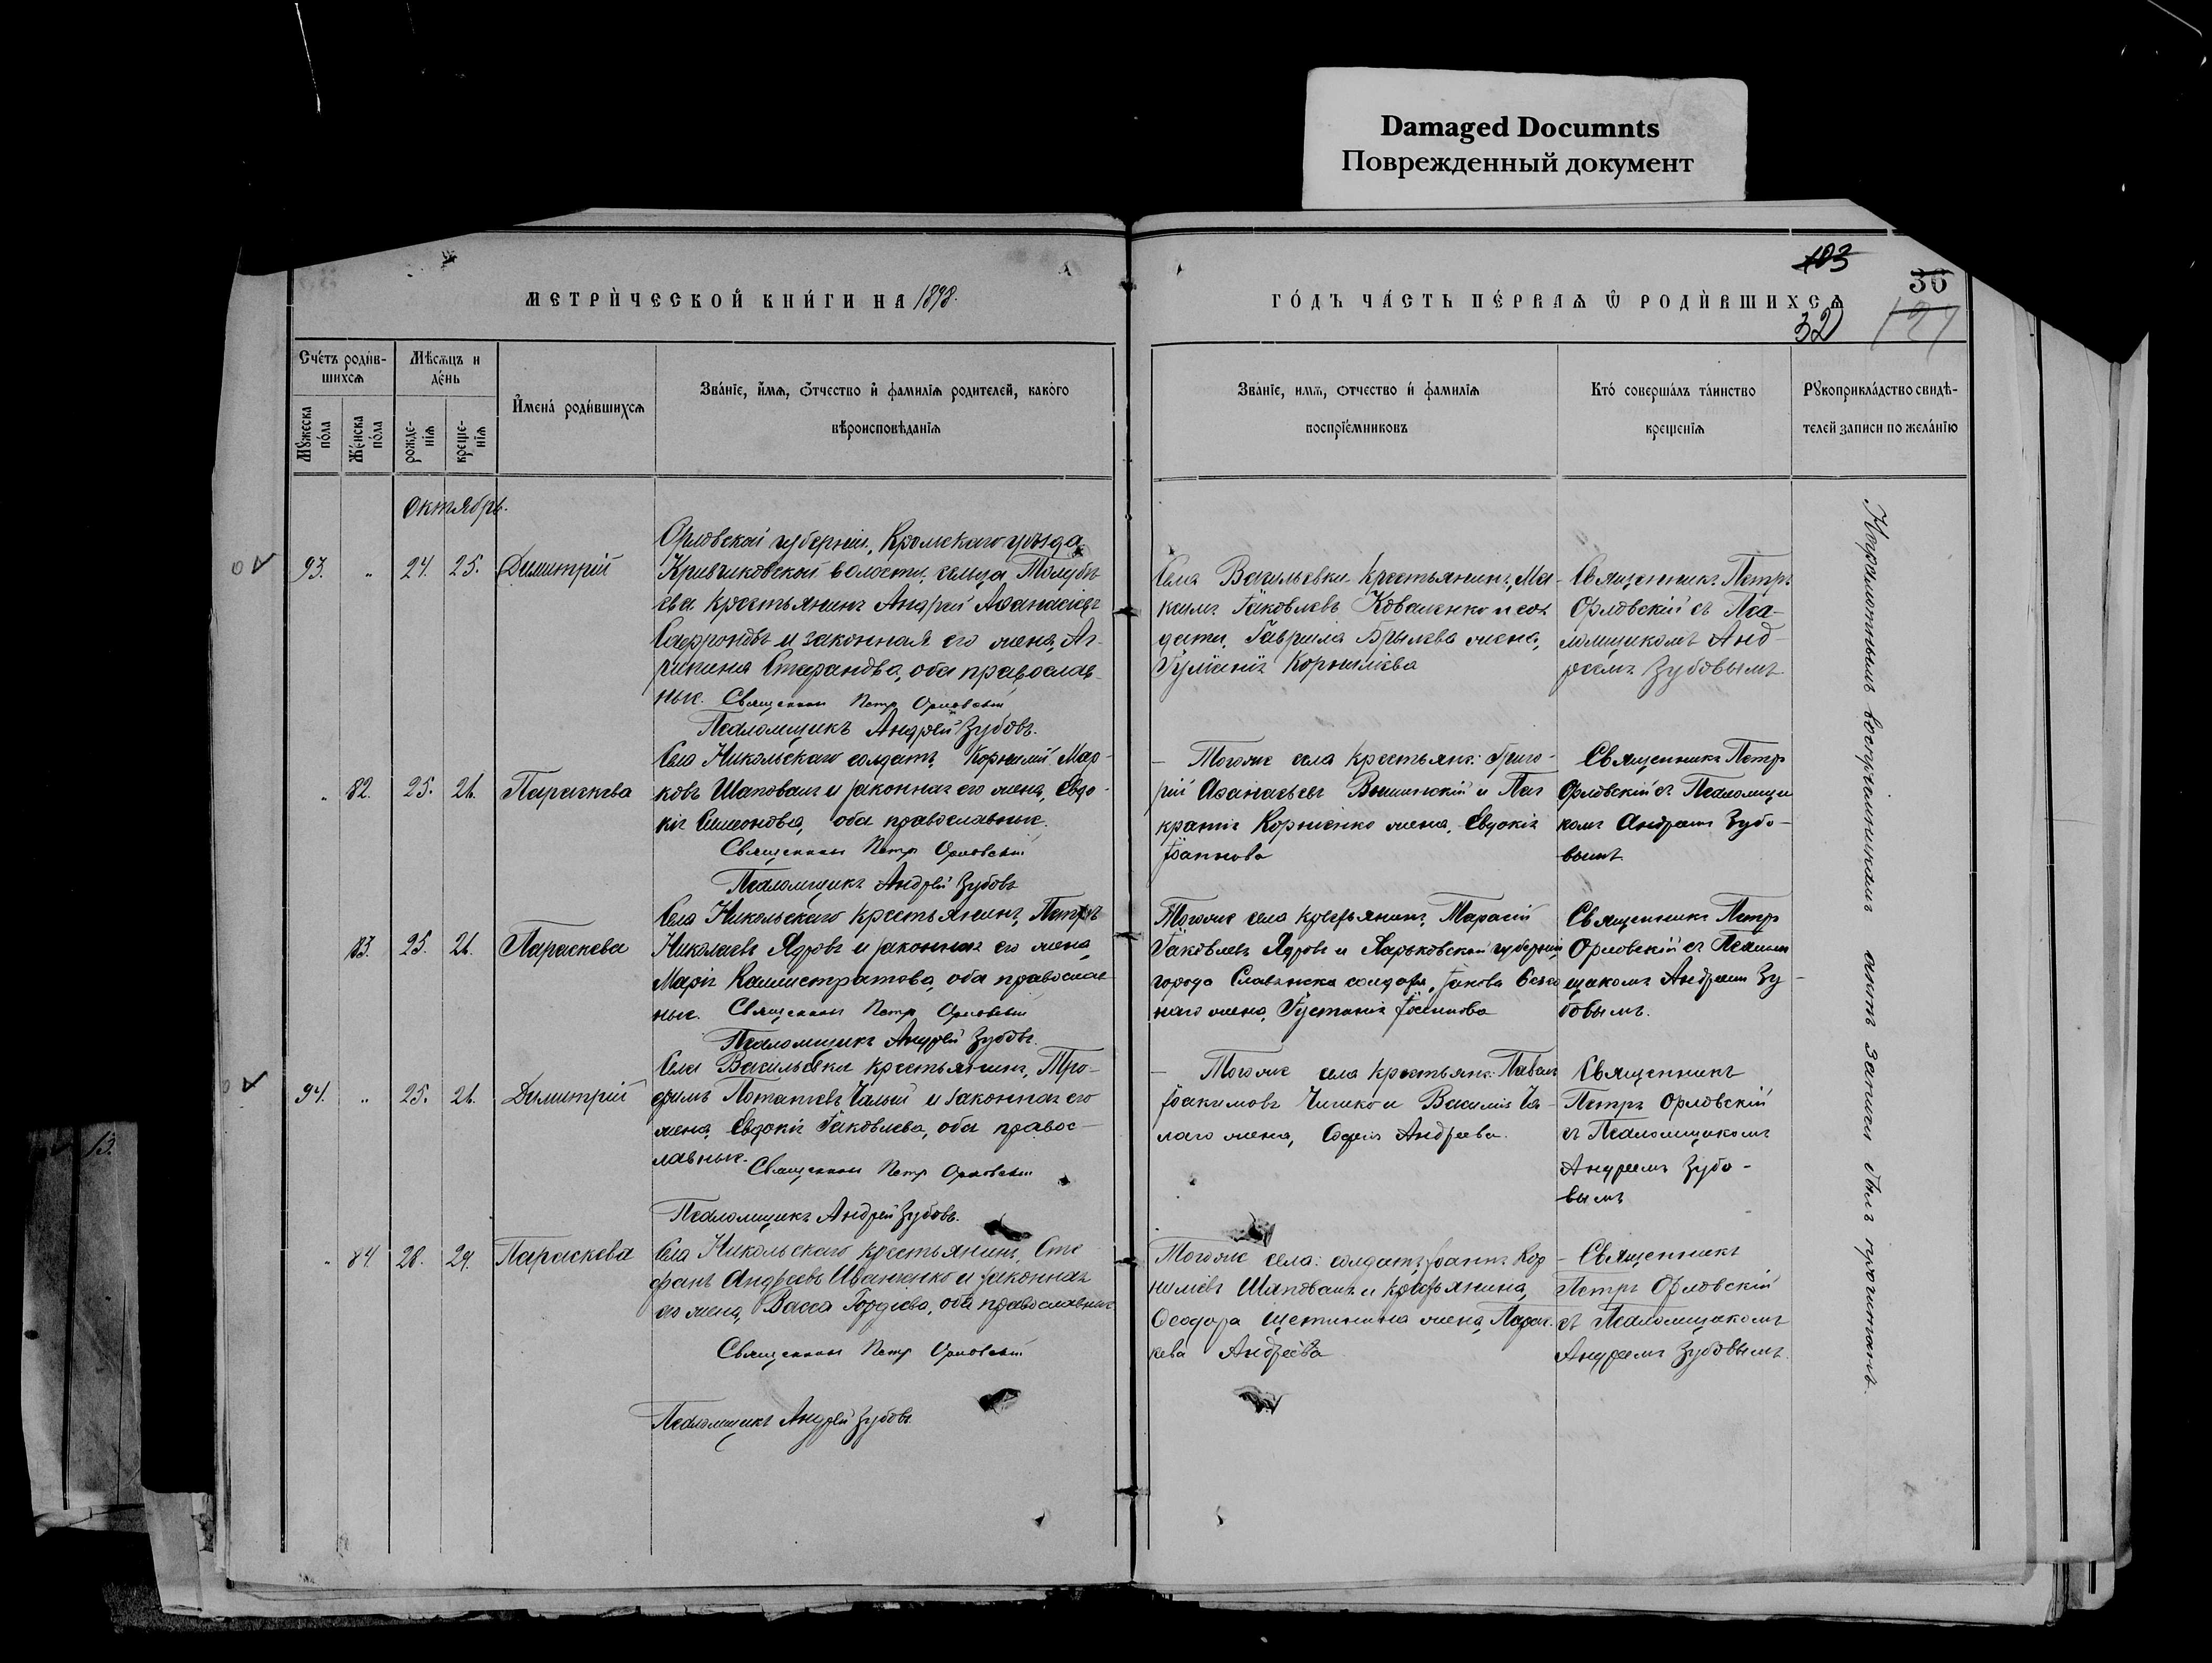 Damaged Documnts
Поврежденный документ
103
36
127
32
МЕТРИ́ЧЕСКОЙ КНИ́ГИ НА 1898.
ГО́ДЪ ЧА́СТЬ ПЕ́РВАѦ Ѿ РОДИ́ВШИХСѦ
Сче́тъ роди́в-
шихсѧ
Мѣ́сѧцъ и
де́нь
Мꙋ́жеска
по́ла
Же́нска
по́ла
рожде-
нїѧ
креще-
нїѧ
И҆мена́ роди́вшихсѧ
Зва́нїе, и҆́мѧ, ѻ҆́тчество и҆ фами́лїѧ роди́телей, како́го
вѣроисповѣ́данїѧ
Зва́нїе, имѧ, ѻтчество и҆ фами́лїѧ
воспрїе́мниковъ
Кто́ соверша́лъ та́инство
креще́нїѧ
Рꙋкоприкла́дство свидѣ́-
телей записи по жела́нїю
Октябрь.
93. " 24. 25. Димитрій
Орловской губерніи, Кромскаго уѣзда,
Кривчиковской волости, сельца Голубѣ-
ева крестьянинъ Андрей Аѳанасіевъ
Сафроновъ и законная его жена, Аг-
рипина Стефанова, оба православ-
ные. Священникъ Петр Орловскій
Псаломщикъ Андрей Зубовъ.
Села Васильевки крестьянинъ, Ма-
ксимъ Іаковлевъ Коваленко и сол
дата, Гавріила Брылева жена,
Іуліанія Корниліева
Священникъ Петръ
Орловскій съ Пса-
ломщикомъ Анд-
реемъ Зубовымъ.
" 82. 25. 26. Параскева
Села Никольскаго солдатъ, Корнилій Мар-
ковъ Шаповалъ и законная его жена, Евдо-
кія Симеонова, оба православные.
Священникъ Петр Орловскій
Псаломщикъ Андрей Зубовъ
Тогоже села крестьян: Григо-
рій Аѳанасьевъ и Пан
кратія Корніенко жена, Евдокія
Іоаннова
Священникъ Петръ
Орловскій съ Псаломщи
комъ Андреемъ Зубо-
вымъ
83. 25. 26. Параскева
Села Никольскаго крестьянинъ, Петръ
Николаевъ Ядровъ и законная его жена,
Марія Каллистратова, оба православ-
ные. Священникъ Петр Орловскій
Псаломщикъ Андрей Зубовъ.
Тогоже села крестьянинъ, Тарасій
Іаковлевъ Ядровъ и Харьковской губерніи,
города Славянска солдата, Іакова
наго жена, Іустинія Іоаннова
Священникъ Петръ
Орловскій съ Псалом
щикомъ Андреемъ Зу-
бовымъ.
94. " 25. 26. Димитрій
Села Васильевки крестьянинъ, Тро-
фимъ Потапіевъ Чалый и законная его
жена, Евдокія Іаковлева, оба правос-
лавные. Священникъ Петр Орловскій
Псаломщикъ Андрей Зубовъ.
Тогоже села крестьян: Павелъ
Іоакимовъ и Василія Ча-
лаго жена, Софія Андреева.
Священникъ
Петръ Орловскій
съ Псаломщикомъ
Андреемъ Зубо-
вымъ
" 84 28. 29. Параскева
Села Никольскаго крестьянинъ, Сте
фанъ Андреевъ Иванченко и законная
его жена, Васса Гордіева, оба православные
Священникъ Петр Орловскій
Псаломщикъ Андрей Зубовъ
Тогоже села: солдатъ, Іоаннъ Кор
ниліевъ Шаповалъ и крестьянина,
Ѳеодора Щетинина жена, Парас-
кева Андреева
Священникъ
Петръ Орловскій
съ Псаломщикомъ
Андреемъ Зубовымъ.
восприемникамъ актъ записи былъ прочитанъ.
13.